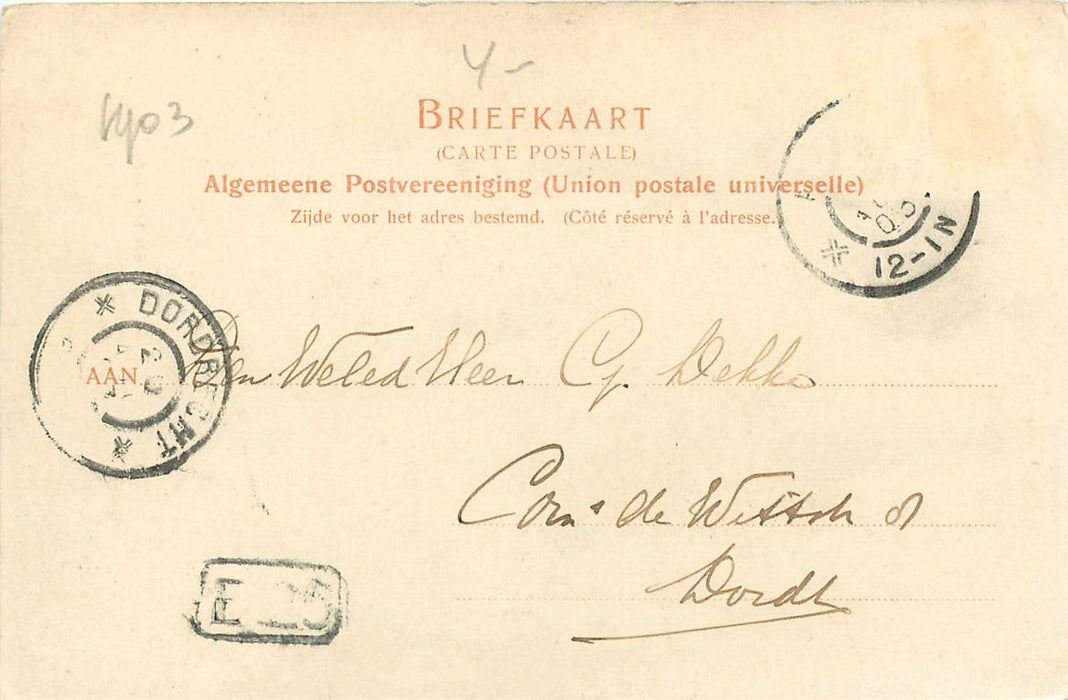 Y-
1903
BRIEFKAART
(CARTE POSTALE)
Algemeene Postvereeniging (Union postale universelle)
Zijde voor het adres bestemd. (Côté réservé à l'adresse.)
12-1N
DORDRECHT
AAN
Den Weled Heer Cg. Dekke
Corns de Wittstr 8
Dordt